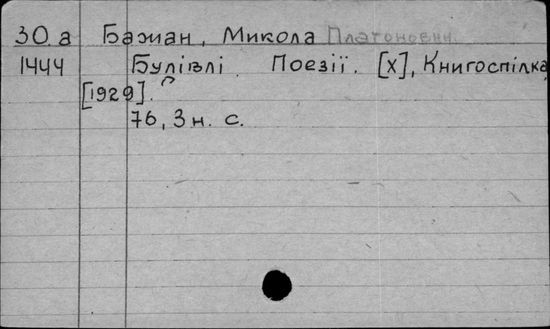 30.а Бажан, Микола Платонович.
1444 Булівлі. Поезії. [Х], Книгоспілка,
[1929].
76, 3 н. с.